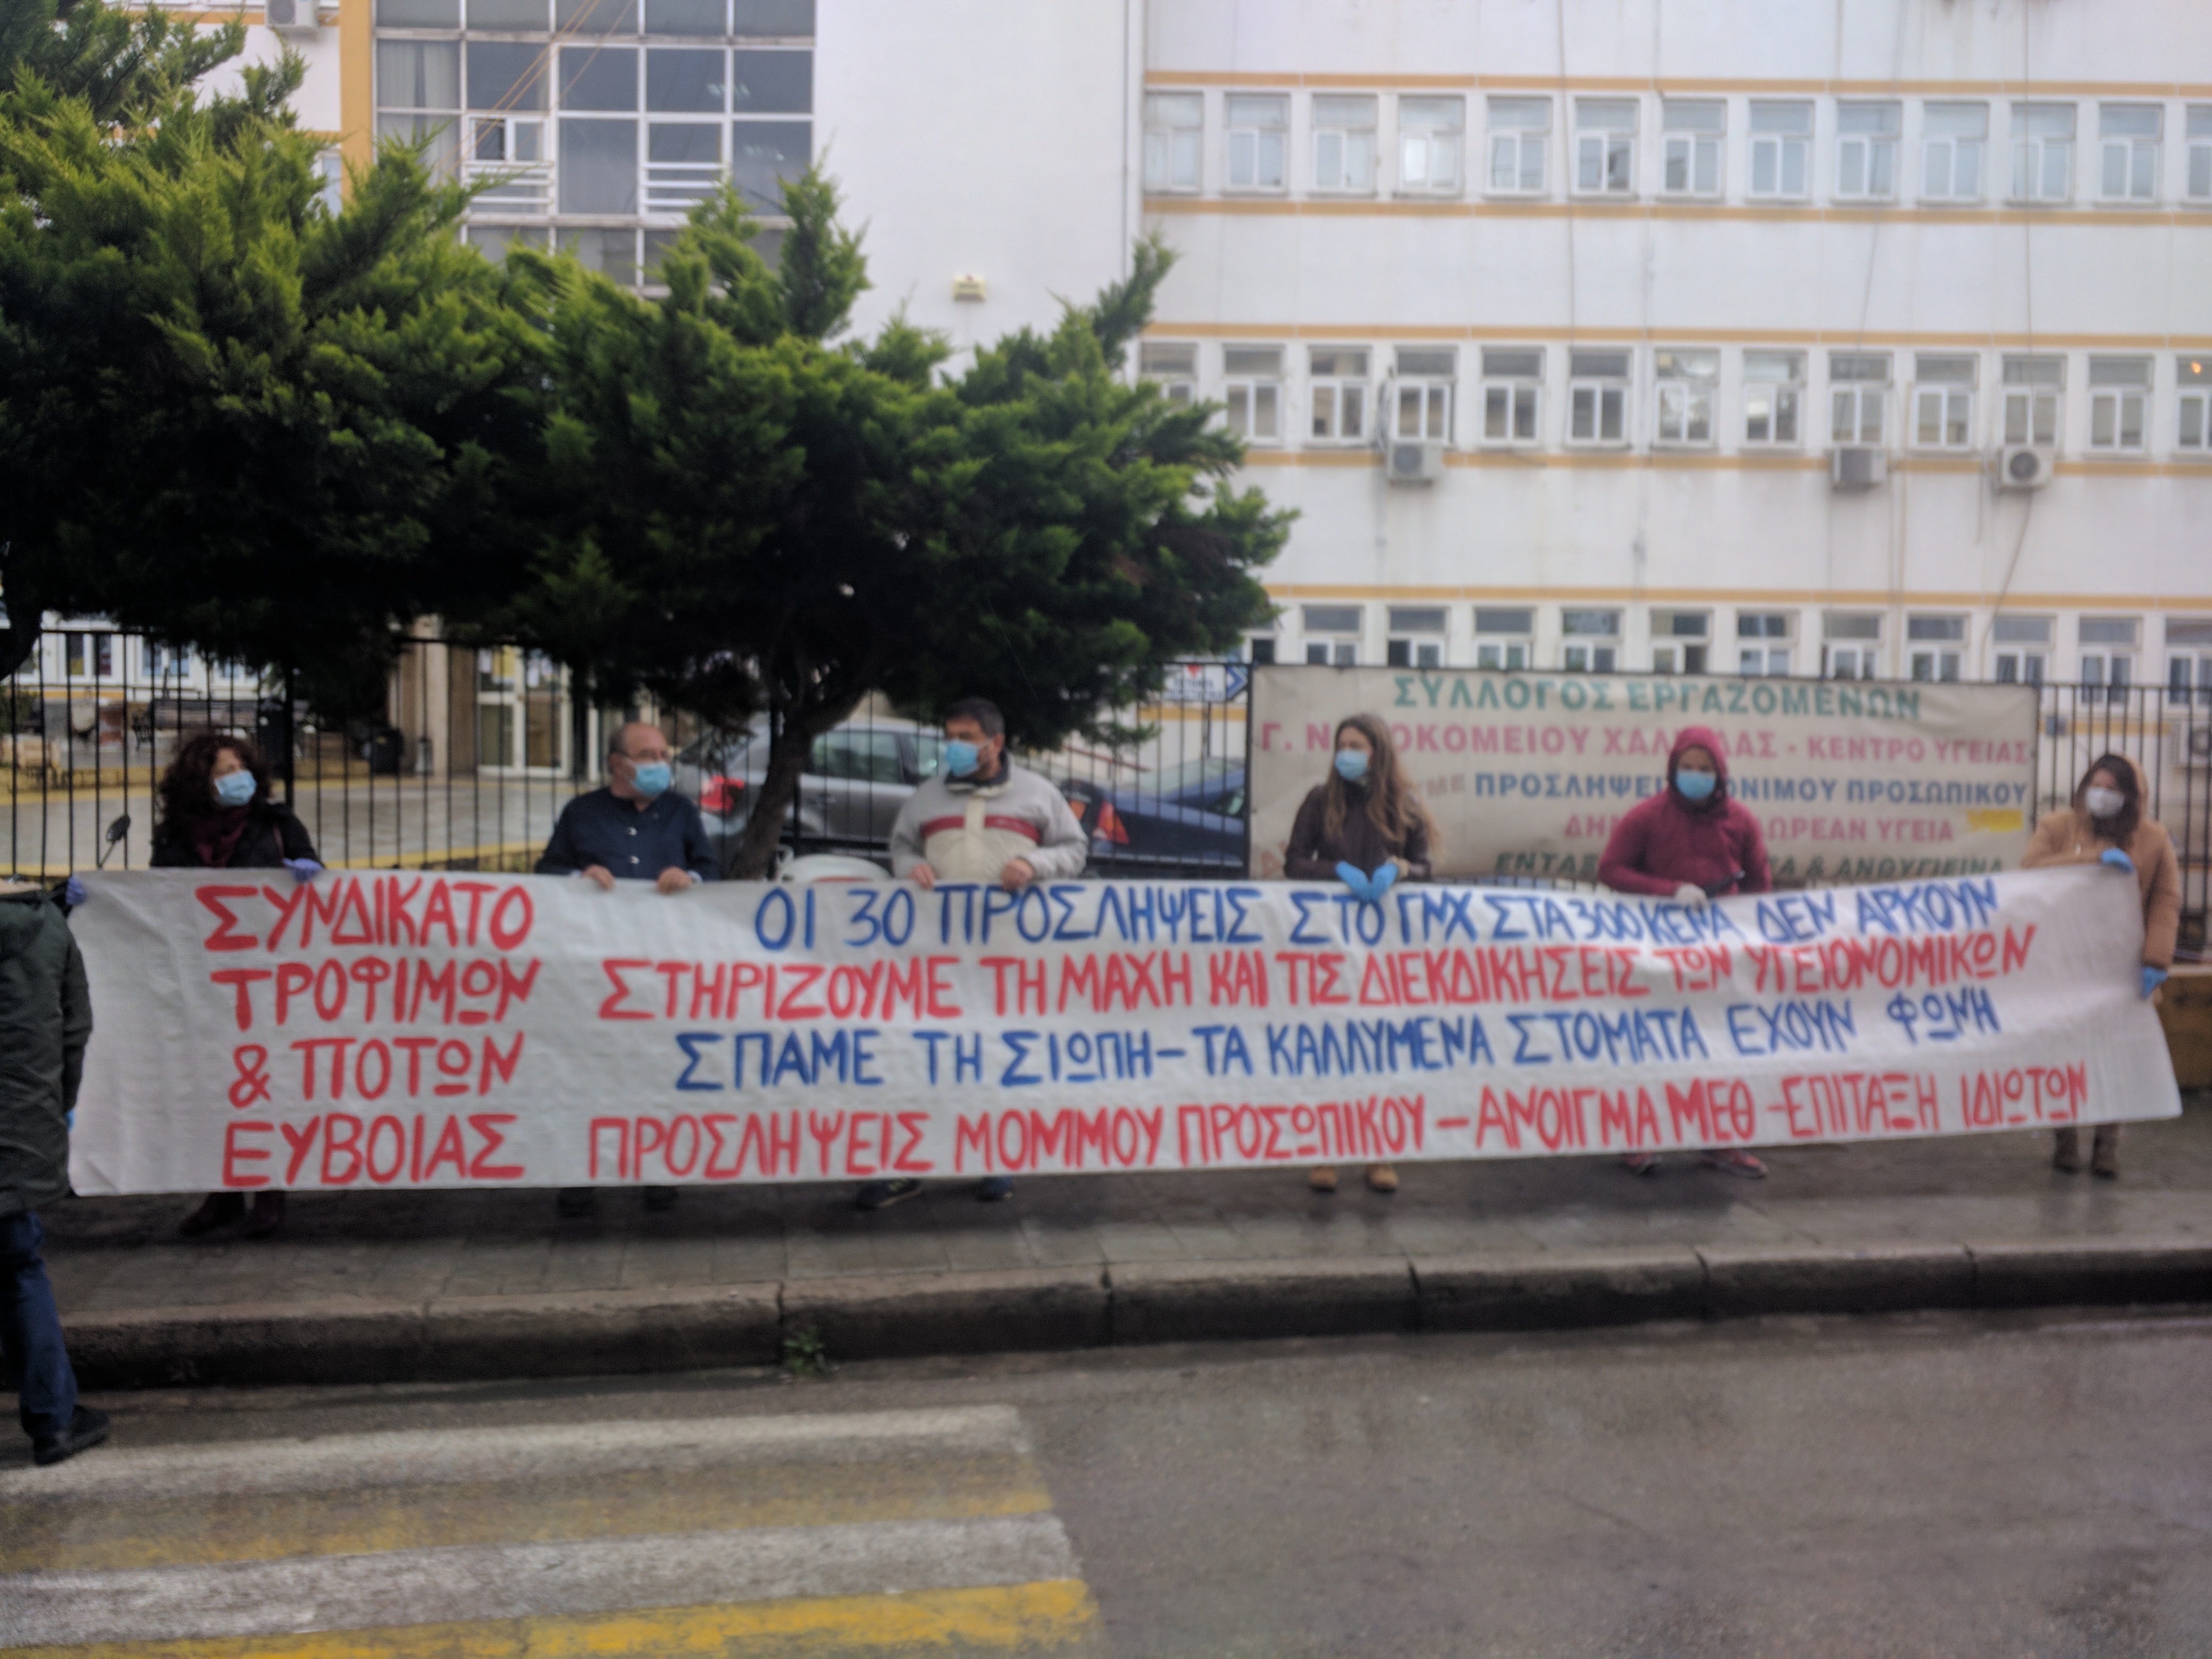 ΣΥΛΛΟΓΟΣ ΕΡΓΑΖΟΜΕΝΩΝ
Γ. ΧΑΛΚΙΔΑΣ - ΚΕΝΤΡΟ ΥΓΕΙΑΣ
ΠΡΟΣΛΗΨΕΙΣ ΜΟΝΙΜΟΥ ΠΡΟΣΩΠΙΚΟΥ
ΔΩΡΕΑΝ ΥΓΕΙΑ
& ΑΝΘΥΓΙΕΙΝΑ
ΣΥΝΔΙΚΑΤΟ
ΤΡΟΦΙΜΩΝ
& ΠΟΤΩΝ
ΕΥΒΟΙΑΣ
ΟΙ 30 ΠΡΟΣΛΗΨΕΙΣ ΣΤΟ ΓΝΧ ΣΤΑ 300 ΚΕΝΑ ΔΕΝ ΑΡΚΟΥΝ
ΣΤΗΡΙΖΟΥΜΕ ΤΗ ΜΑΧΗ ΚΑΙ ΤΙΣ ΔΙΕΚΔΙΚΗΣΕΙΣ ΤΩΝ ΥΓΕΙΟΝΟΜΙΚΩΝ
ΣΠΑΜΕ ΤΗ ΣΙΩΠΗ - ΤΑ ΚΑΛΛΥΜΕΝΑ ΣΤΟΜΑΤΑ ΕΧΟΥΝ ΦΩΝΗ
ΠΡΟΣΛΗΨΕΙΣ ΜΟΜΜΟΥ ΠΡΟΣΩΠΙΚΟΥ - ΑΝΟΙΓΜΑ ΜΕΘ - ΕΠΙΤΑΞΗ ΙΔΙΩΤΩΝ